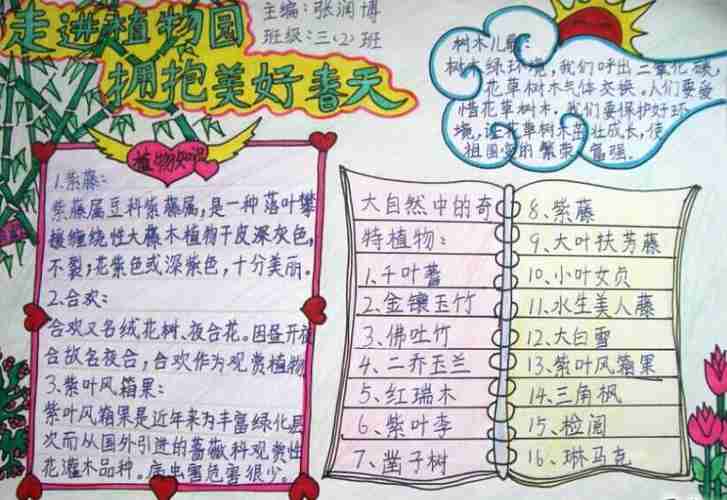 走进植物园
拥抱美好春天
主编:张润博
班级:三(2)班
树木儿歌:
树木绿环境,我们呼出二氧化碳,
花草树木气体交换。人们要爱
惜花草树木,我们要保护好环
境,让花草树木茁壮成长,使
祖国变的繁荣、富强。
植物知识
1.紫藤:
紫藤属豆科紫藤属,是一种落叶攀
援缠绕性大藤木植物干皮深灰色,
不裂;花紫色或深紫色,十分美丽。
2.合欢:
合欢又名绒花树、夜合花。因昼开夜
合故名夜合,合欢作为观赏植物
3.紫叶风箱果:
紫叶风箱果是近年来为丰富绿化层
次而从国外引进的蔷薇科观赏性
花灌木品种。病虫害危害很少。
大自然中的奇
特植物:
1.千叶蓍
2.金镶玉竹
3.佛吐竹
4、二乔玉兰
5、红瑞木
6、紫叶李
7、凿子树
8、紫藤
9、大叶扶芳藤
10、小叶女贞
11、水生美人藤
12、大白雪
13、紫叶风箱果
14、三角枫
15、检阅
16、琳马克